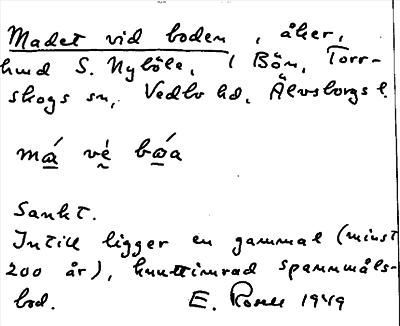 Madet vid boden, åker,
hmd S. Nyböle, i Bön, Torr-
skogs sn, Vedbo hd, Älvsborgs l.
má vé bóa
Sankt.
Intill ligger en gammal (minst
200 år), knuttimrad spannmåls-
bod.
E. 1949